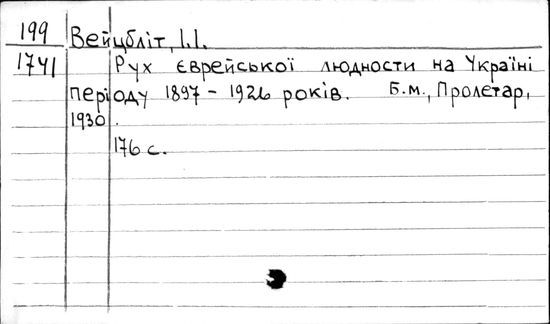 199 Вейцбліт, І.І.
1741 Рух єврейської людности на Україні
періоду 1897 – 1926 років. Б.м., Пролетар,
1930.
176 с.